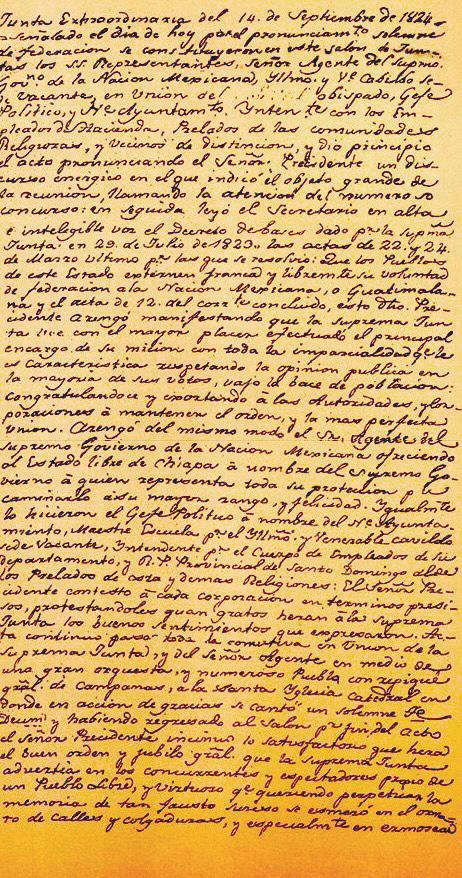 Junta Extraordinaria del 14. de Septiembre de 1824.
Señalado el dia de hoy para el pronunciamto. solemne
de federacion se constituyeron en este salon de Jun-
tas los SS. Representantes, Señor Agente del Supmo.
Govno. de la Nacion Mexicana, Yllmo. y Ve. Cabildo Se-
de vacante, en union del obispado, Gefe
Politico, y Ne. Ayuntamto. Ynten te. con los Em-
pleados de Hacienda, Prelados de las comunidades
Religiosas, y Vecinos de distincion, y dio principio
el acto pronunciando el Señor Presidente un dis-
curso energico en el que indicó el objeto grande de
la reunion, llamando la atencion del numeroso
concurso: en seguida leyó el Secretario en alta
é inteligible voz el Decreto de bases dado pr. la supma
Junta en 29. de Julio de 1923., las actas de 22. y 24.
de Marzo ultimo pr. las que se resolvió: Que los Pueblos
de este Estado externen franca y libremte. su voluntad
de federacion ala Nacion Mexicana, o Guatimala-
na y el acta de 12. del corrte. concluido, esto dho. Pre-
cidente Arengó manifestando que la Suprema Jun
ta con el mayor placer efectualó el principal
encargo de su micion con toda la imparcialidad qe. le
es Caracteristica respetando la opinion publica en
la mayoria de sus votos, vajo la bace de poblacion:
congratulandoce y exortando à las Autoridades, y Cor-
poraciones à mantener el orden, y la mas perfecta
union. Arengó del mismo modo el Sr. Agente del
Supremo Govierno de la Nacion Mexicana ofreciendo
al Estado libre de Chiapa à nombre del Supremo Go-
vierno à quien representa toda su protecion pa.
camiñarle àsu mayor rango, y felicidad. Igualmte.
lo hicieron el Gefe Politico à nombre del Ne. Ayunta-
miento, Maestre Escuela pr. el Yllmo. y Venerable cavildo
sede Vacante, Yntendente pr. el Cuerpo de Empleados de su
departamento, y R. P. Provincial de Santo Domingo alde
los Prelados de esta y demas Religiones: El Señor Pre-
cidente contestó à cada corporacion en terminos preci-
sos, protestandoles quan gratos heran àla Suprema
Junta los buenos sentimientos que expresaron. Ac-
to continuo paso toda la comitiva en Union de la
Suprema Junta, y del Señor Agente en medio de
una gran orquesta, y numeroso Pueblo con repique
gral. de campanas, a la Santa Yglecia Catedral en
donde en accion de gracias se cantó un solemne Te
Deum y habiendo regresado al Salon pr. fin del Acto
el Señor Precidente lo satisfactorio que hera
el buen orden y jubilo gral. que la Suprema Junta
advertia en los concurrentes y espectadores propio de
un Pueblo Libre, y virtuoso qe. queriendo perpetuar la
memoria de tan fausto suceso se esmeró en el orna
to de calles y colgaduras, y especialmte. en ermosear